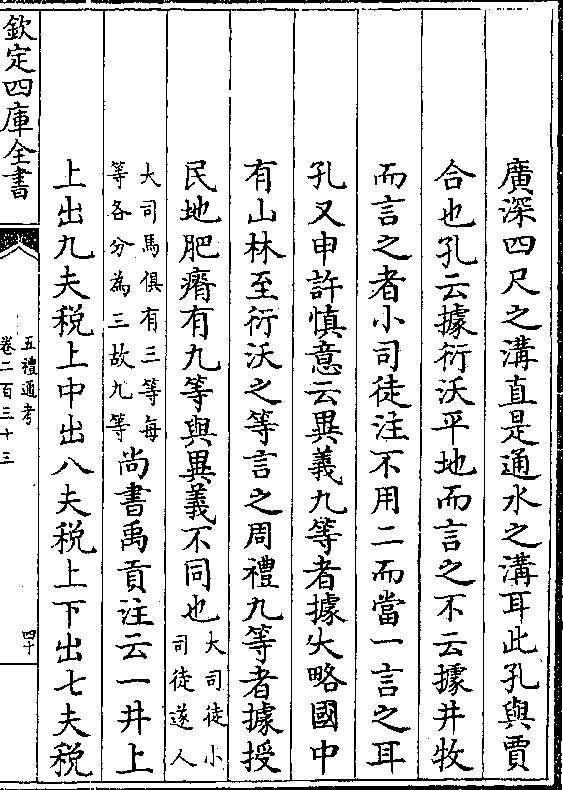 廣深四尺之溝直是通水之溝耳此孔與賈
合也孔云據衍沃平地而言之不云據井牧
而言之者小司徒注不用二而當一言之耳
孔又申許慎意云異義九等者據大略國中
有山林至衍沃之等言之周禮九等者據授
民地肥瘠有九等與異義不同也大司徒小司徒遂人
大司馬俱有三等每等各分為三故九等尚書禹貢注云一井上
上出九夫税上中出八夫税上下出七夫税
欽定四庫全書
五禮通考
卷二百三十三
四十